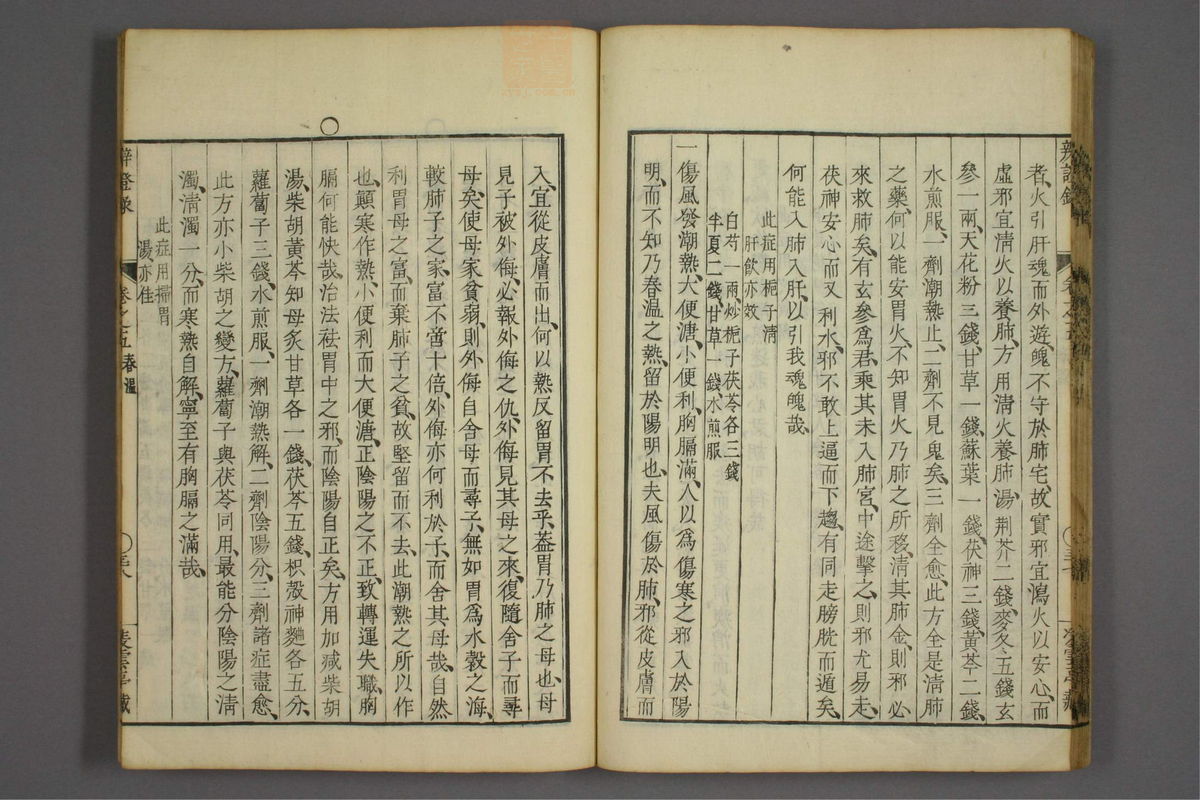 者、火引肝魂而外遊、魄不守於肺宅、故實邪宜瀉火以安心、而
虛邪宜清火以養肺、方用清火養肺湯、荆芥二錢、麥冬五錢、玄
參一兩、天花粉三錢、甘草一錢、蘇葉一錢、茯神三錢、黃芩二錢、
水煎服、一劑潮熱止、二劑不見鬼矣、三劑全愈、此方全是清肺
之藥、何以能安胃火、不知胃火乃肺之所移、清其肺金、則邪必
來救肺矣、有玄參爲君、乘其未入肺宮、中途擊之、則邪尤易走、
茯神安心而又利水、邪不敢上逼而下趨、有同走膀胱而遁矣、
何能入肺入肝、以引我魂魄哉、
此症用梔子清
肝飲亦效
白芍一兩炒梔子茯苓各三錢
半夏二錢、甘草一錢、水煎服
一傷風發潮熱、大便溏、小便利、胸膈滿、人以爲傷寒之邪入於陽
明、而不知乃春溫之熱、留於陽明也、夫風傷於肺、邪從皮膚而
入、宜從皮膚而出、何以熱反留胃不去乎、蓋胃乃肺之母也、母
見子被外侮、必報外侮之仇、外侮見其母之來、復隨舍子而尋
母矣、使母家貧弱、則外侮自舍母而尋子、無如胃爲水穀之海、
較肺子之家、富不啻十倍、外侮亦何利於子、而舍其母哉、自然
利胃母之富、而棄肺子之貧、故堅留而不去、此潮熱之所以作
也、顛寒作熱、小便利而大便溏、正陰陽之不正、致轉運失職、胸
膈何能快哉、治法祛胃中之邪、而陰陽自正矣、方用加減柴胡
湯、柴胡黃芩知母炙甘草各一錢、茯苓五錢、枳殼神麯各五分、
蘿蔔子三錢、水煎服、一劑潮熱解、二劑陰陽分、三劑諸症盡愈、
此方亦小柴胡之變方、蘿蔔子與茯苓同用、最能分陰陽之清
濁、清濁一分、而寒熱自解、寧至有胸膈之滿哉、
此症用掃胃
湯亦佳
卷之五 春溫